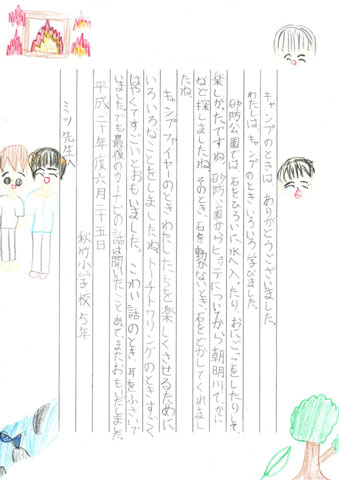 キャンプのときは、ありがとうございました。
わたしは、キャンプのときいろいろ学びました。
砂防公園では、石をひろいに水へ入ったり、おにごっこをしたりして、
楽しかたですね。砂防公園からヒュッテについてから朝明川でかに
など探しましたね。そのとき、石を動かないとき、石をどかしてくれまし
たね。
キャンプファイヤーのときわたしたちを楽しくさせるために
いろいろなことをしましたね。トーチトワリングのときすごく
はやくてすごいとおもいました。こわい話のとき、耳をふさいで
いました。でも最後のカーテンの話は聞いたことあて、またおもいだしました。
平成二十年度六月二十五日
秋竹小学校5年
ミッ先生へ